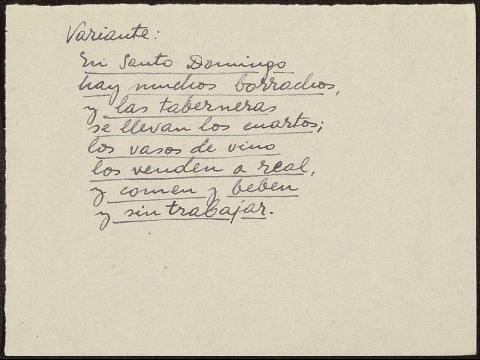 Variante:
En Santo Domingo
hay muchos borrachos,
y las taberneras
se llevan los cuartos;
los vasos de vino
los venden a real,
y comen y beben
y sin trabajar.